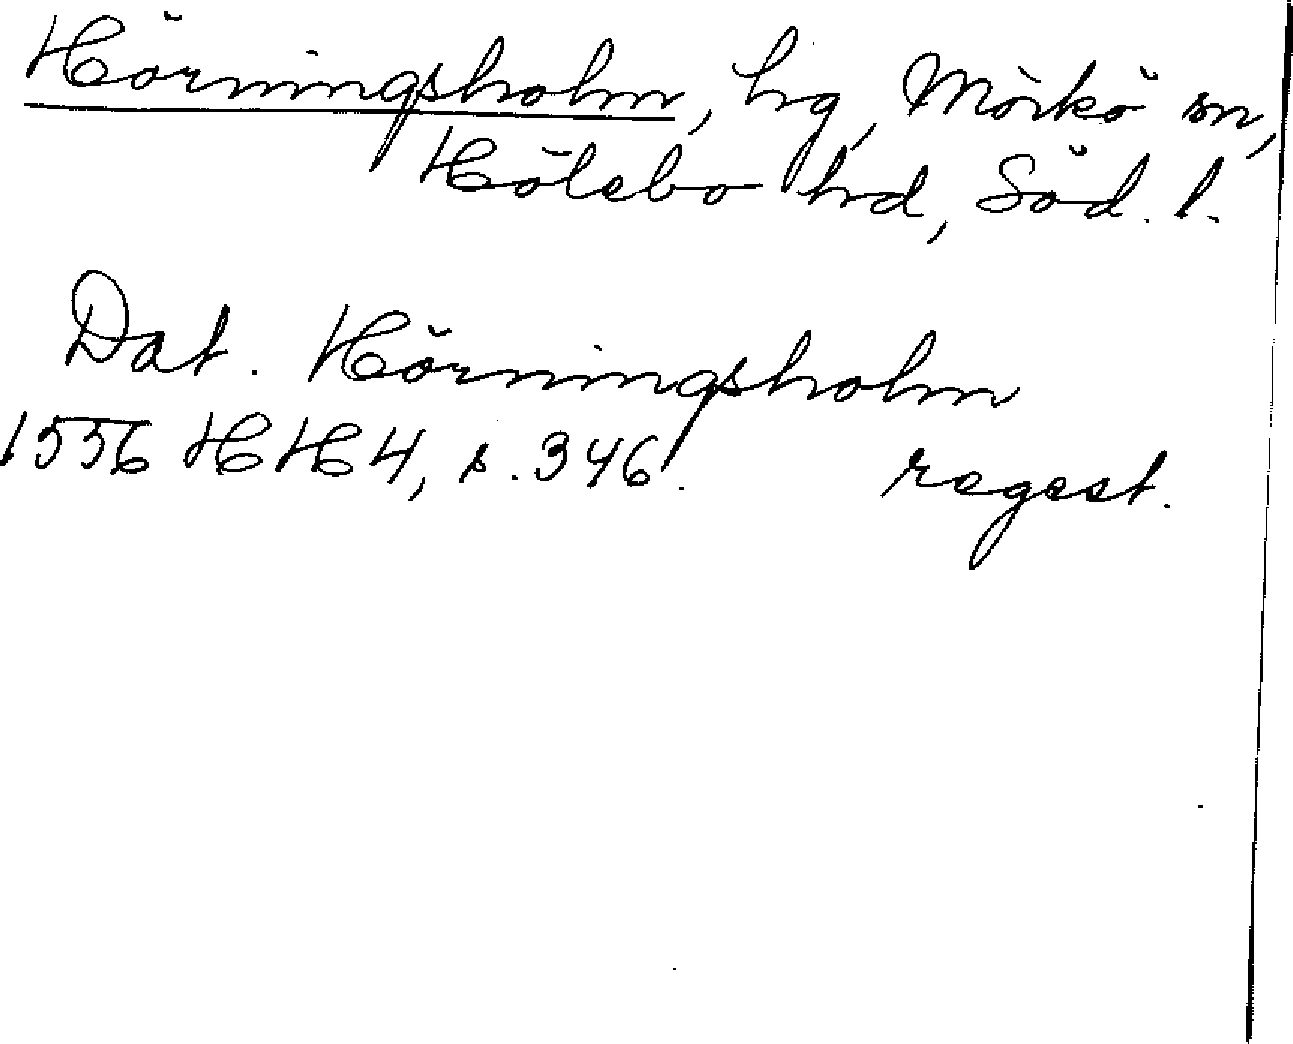 Hörningsholm, hg, Mörkö sn,
Hölebo hd, Söd. l.
Dat. Hörningsholm
1556 HH 4, s. 346. regest.